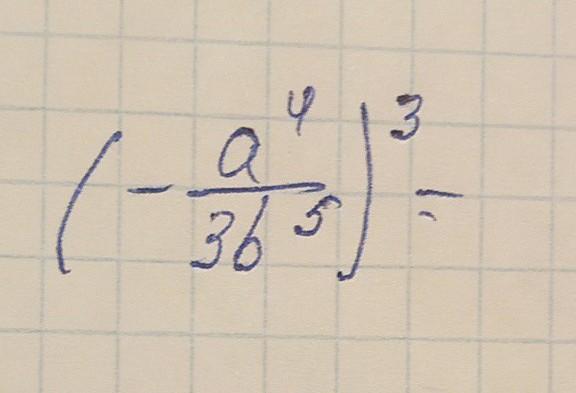 (- a^4 / 3b^5)^3 =